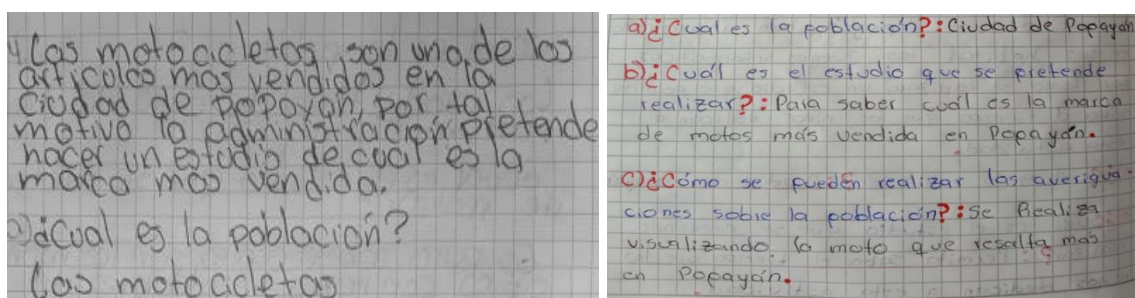 1) Las motocicletas son una de los
articulos mas vendidos en la
Ciudad de popayan, por tal
motivo la administración pretende
hacer un estudio de cual es la
marca mas vendida.
a) ¿Cual es la población?
Las motocicletas
a) ¿Cual es la población?: Ciudad de Popayan
b) ¿Cuál es el estudio que se pretende
realizar?: Para saber cuál es la marca
de motos más vendida en Popayán.
c) ¿Cómo se pueden realizar las averigua-
ciones sobre la población?: Se Realiza
visualizando la moto que resalta mas
en Popayán.